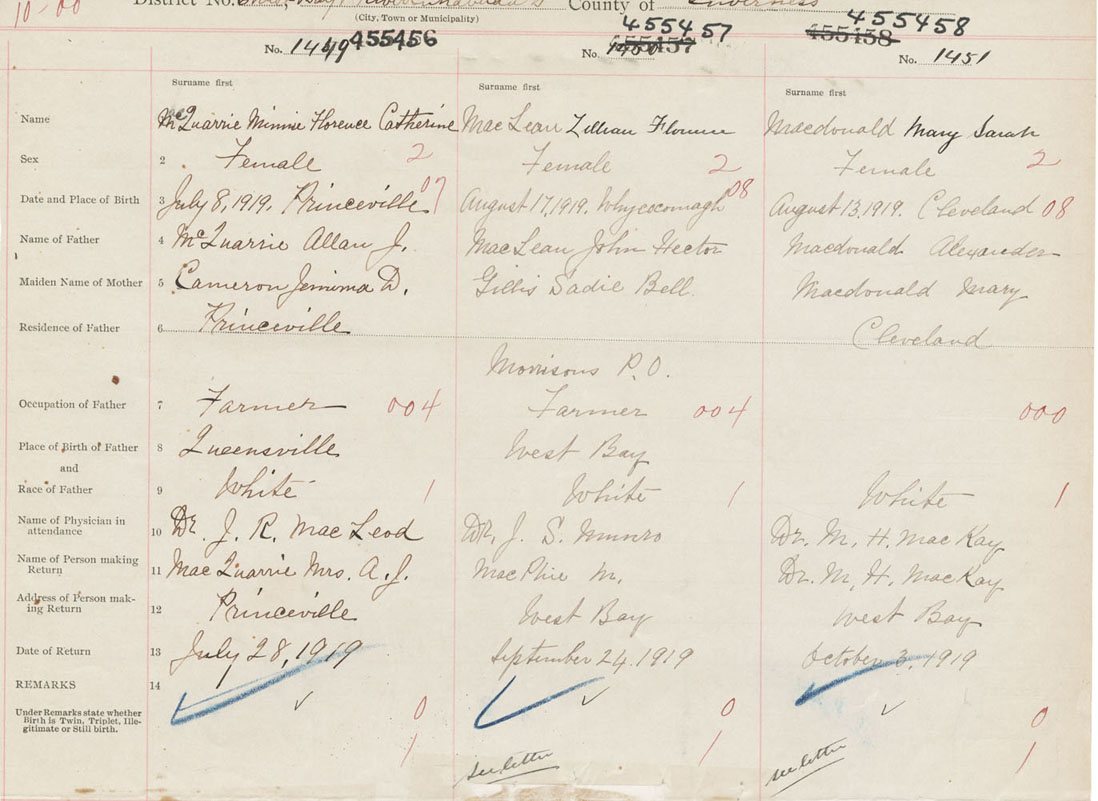 10-00 District No. County of Inverness
(City, Town or Municipality)
No. 1449 455456 455457 No. 1450 455457 455458 455458 No. 1451
Surname first Surname first Surname first
Name McQuarrie Minnie Florence Catherine MacLean Lillian Florence Macdonald Mary Sarah
Sex 2 Female 2 Female 2 Female 2
Date and Place of Birth 3 July 8, 1919. Princeville 07 August 17, 1919. Whycocomagh 08 August 13, 1919. Cleveland 08
Name of Father 4 McQuarrie Allan J. MacLean John Hector Macdonald Alexander
Maiden Name of Mother 5 Cameron Jemima D. Gillis Sadie Bell Macdonald Mary
Residence of Father 6 Princeville Cleveland
Morrisons P.O.
Occupation of Father 7 Farmer 004 Farmer 004 000
Place of Birth of Father 8 Queensville West Bay
and
Race of Father 9 White 1 White 1 White 1
Name of Physician in
attendance 10 Dr. J. R. MacLeod Dr. J. S. Munro Dr. M. H. MacKay
Name of Person making
Return 11 MacQuarrie Mrs. A. J. MacPhie M. Dr. M. H. MacKay
Address of Person mak-
ing Return 12 Princeville West Bay West Bay
Date of Return 13 July 28, 1919 September 24, 1919 October 3, 1919
REMARKS 14
Under Remarks state whether
Birth is Twin, Triplet, Ille-
gitimate or Still birth. 0 0 0
1 1 1
see letter see letter